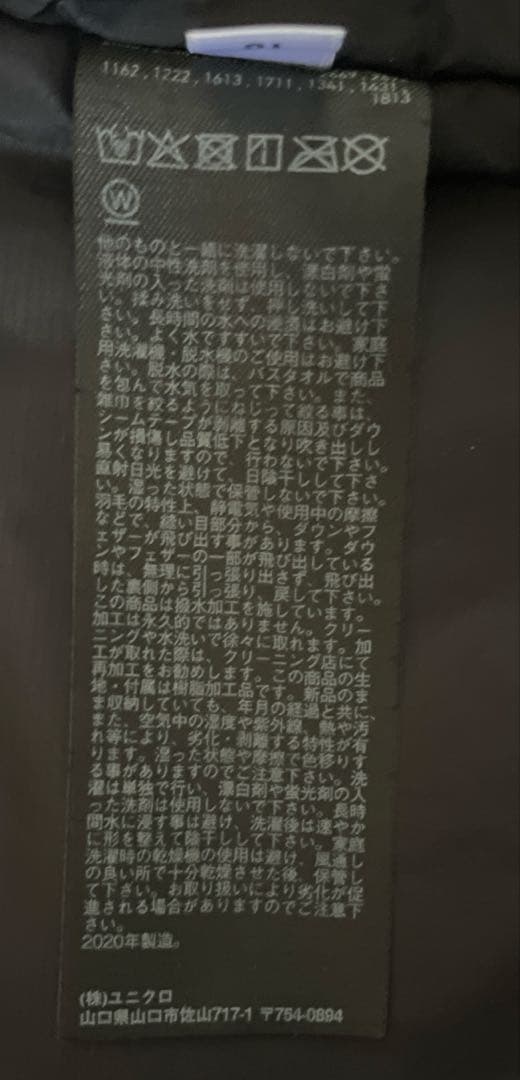 1162,1222,1613,1711,1341,1431,
1813
W
他のものと一緒に洗濯しないで下さい。
液体の中性洗剤を使用し、漂白剤や蛍
光剤の入った洗剤は使用しないで下さ
い。揉み洗いをせず、押し洗いして下
さい。長時間の水への浸漬はお避け下
さい。よく水ですすいで下さい。家庭
用洗濯機・脱水機のご使用はお避け下
さい。脱水の際は、バスタオルで商品
を包んで水気を取って下さい。また、
雑巾を絞るようにねじって絞る事は、
シームテープが剥離する原因及びダウ
ンが損傷し品質低下となり吹き出しし
易くなりますので、行わないで下さい。
直射日光を避けて、日陰干しして下さ
い。湿った状態で保管しないで下さい。
羽毛の特性上、静電気や使用中の摩擦
などで、縫い目部分から、ダウンやフ
ェザーが飛び出す事があります。ダウ
ンやフェザーの一部が飛び出している
時は、無理に引っ張り出さず、飛び出
した裏側から引っ張り、戻して下さい。
この商品は撥水加工を施しています。
加工は永久的ではありません。クリー
ニングや水洗いで徐々に取れます。加
工が取れた際は、クリーニング店にて
再加工をお勧めします。この商品の生
地・付属は樹脂加工品です。新品のま
ま収納していても、年月の経過と共に、
また、空気中の湿度や紫外線、熱や汚
れ等により、劣化・剥離する特性が有
ります。湿った状態や摩擦で色移りす
る事がありますのでご注意下さい。洗
濯は単独で行い、漂白剤や蛍光剤の入
った洗剤は使用しないで下さい。長時
間水に浸す事は避け、洗濯後は速やか
に形を整えて陰干しして下さい。家庭
洗濯時の乾燥機の使用は避け、風通し
の良い所で十分乾燥させた後、保管し
て下さい。お取り扱いにより劣化が促
進される場合がありますのでご注意下
さい。
2020年製造。
(株)ユニクロ
山口県山口市佐山717-1 〒754-0894